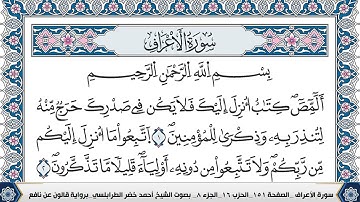 سورة الأعراف
بِسْمِ اللَّهِ الرَّحْمَٰنِ الرَّحِيمِ
أَلَٓمِّٓصَٓ كِتَٰبٌ أُنزِلَ إِلَيْكَ فَلَا يَكُن فِي صَدْرِكَ حَرَجٌ مِّنْهُ
لِتُنذِرَ بِهِۦ وَذِكْرَىٰ لِلْمُؤْمِنِينَ ١ اَ۪تَّبِعُوا مَا أُنزِلَ إِلَيْكُم
مِّن رَّبِّكُمْ وَلَا تَتَّبِعُوا مِن دُونِهِۦٓ أَوْلِيَآءَ قَلِيلًا مَّا تَذَّكَّرُونَ ٢
سورة الأعراف _الصفحة ١٥١ _الحزب ١٦ _الجزء ٨_ بصوت الشيخ أحمد خضر الطرابلسي_ برواية قالون عن نافع